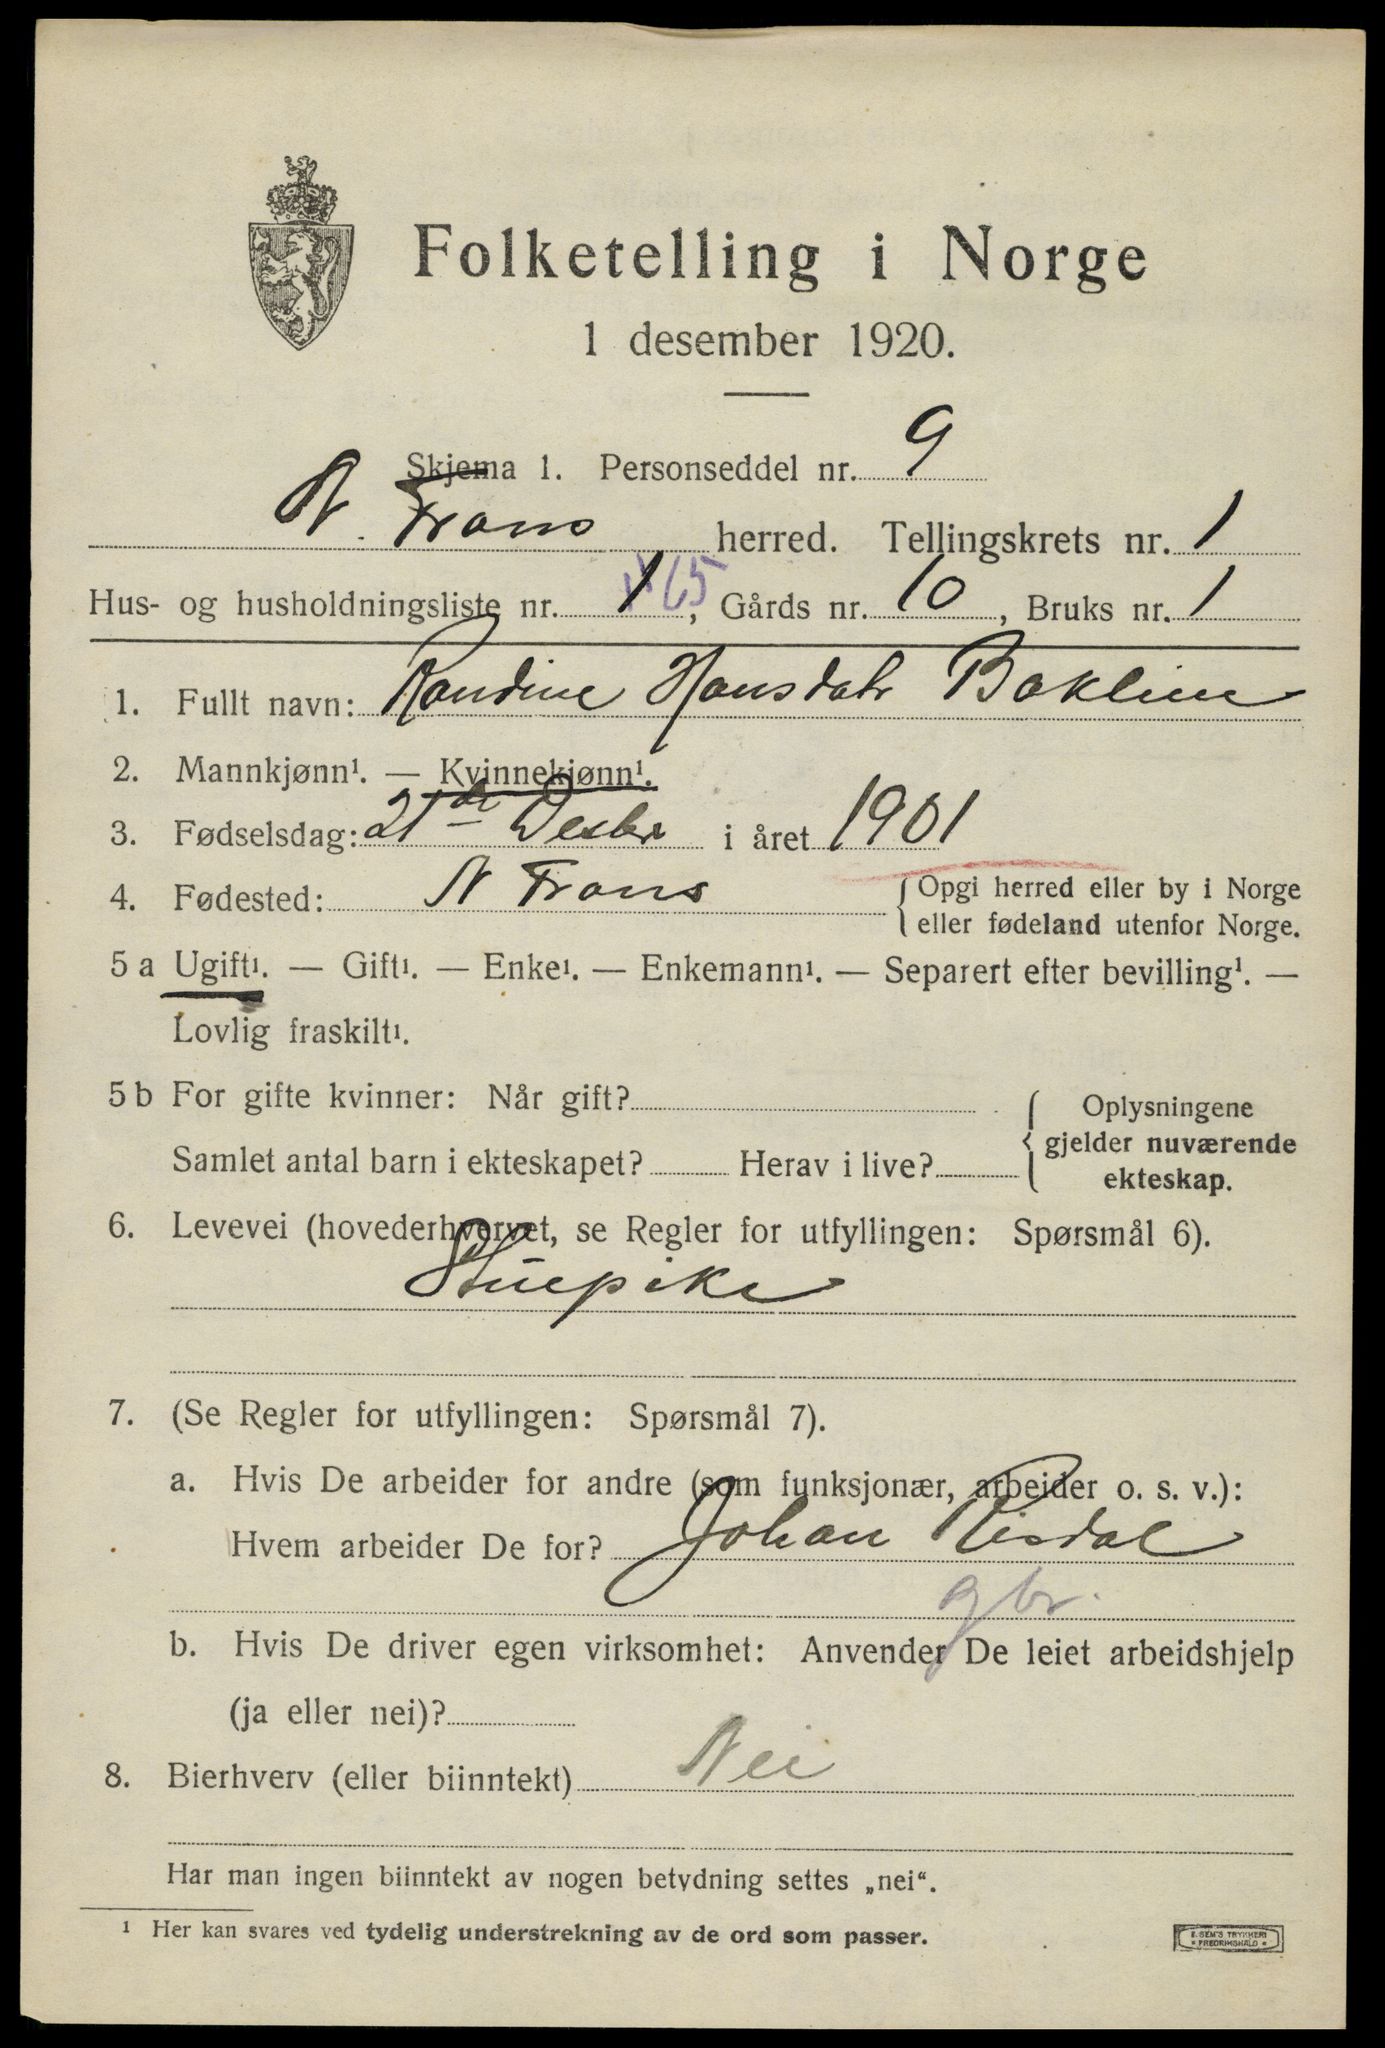 Folketelling i Norge
1 desember 1920.
Skjema 1. Personseddel nr. 9
N. Frons herred. Tellingskrets nr. 1
Hus- og husholdningsliste nr. 1 65, Gårds nr. 10, Bruks nr. 1
1. Fullt navn: Randine Hansdatr Baklien
2. Mannkjønn¹. — Kvinnekjønn¹.
3. Fødselsdag: 21de Desbr i året 1901
4. Fødested: N Frons { Opgi herred eller by i Norge
eller fødeland utenfor Norge.
5 a Ugift¹. — Gift¹. — Enke¹. — Enkemann¹. — Separert efter bevilling¹. —
Lovlig fraskilt¹.
5 b For gifte kvinner: Når gift?
Samlet antal barn i ekteskapet? Herav i live?
{ Oplysningene
gjelder nuværende
ekteskap.
6. Levevei (hovederhvervet, se Regler for utfyllingen: Spørsmål 6).
Stuepike
7. (Se Regler for utfyllingen: Spørsmål 7).
a. Hvis De arbeider for andre (som funksjonær, arbeider o. s. v.):
Hvem arbeider De for? Johan Risdal
gbr.
b. Hvis De driver egen virksomhet: Anvender De leiet arbeidshjelp
(ja eller nei)?
8. Bierhverv (eller biinntekt) Nei
Har man ingen biinntekt av nogen betydning settes „nei“.
¹ Her kan svares ved tydelig understrekning av de ord som passer.
E. SEM'S TRYKKERI
* FREDRIKSHALD *